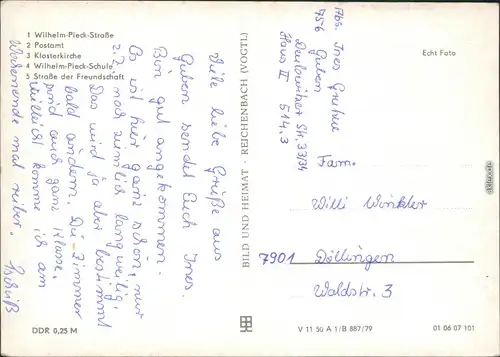 1 Wilhelm-Pieck-Straße
2 Postamt
3 Klosterkirche
4 Wilhelm-Pieck-Schule
5 Straße der Freundschaft
Viele liebe Grüße aus
Guben sendet Euch Ines.
Bin gut angekommen.
Es ist hier ganz schön, nur
z.Z. noch ziemlich langweilig.
Das wird ja aber bestimmt
bald anders. Die Zimmer
sind auch ganz Klasse.
Vielleicht komme ich am
Wochenende mal rüber.
Tschüß
DDR 0,25 M
BILD UND HEIMAT · REICHENBACH (VOGTL)
V 11 50 A 1/B 887/79
01 06 07 101
Echt Foto
Abs. Ines
756 Guben
Str. 33/34
Haus II 514.3
Fam.
Willi Winkler
7901 Döllingen
Waldstr. 3